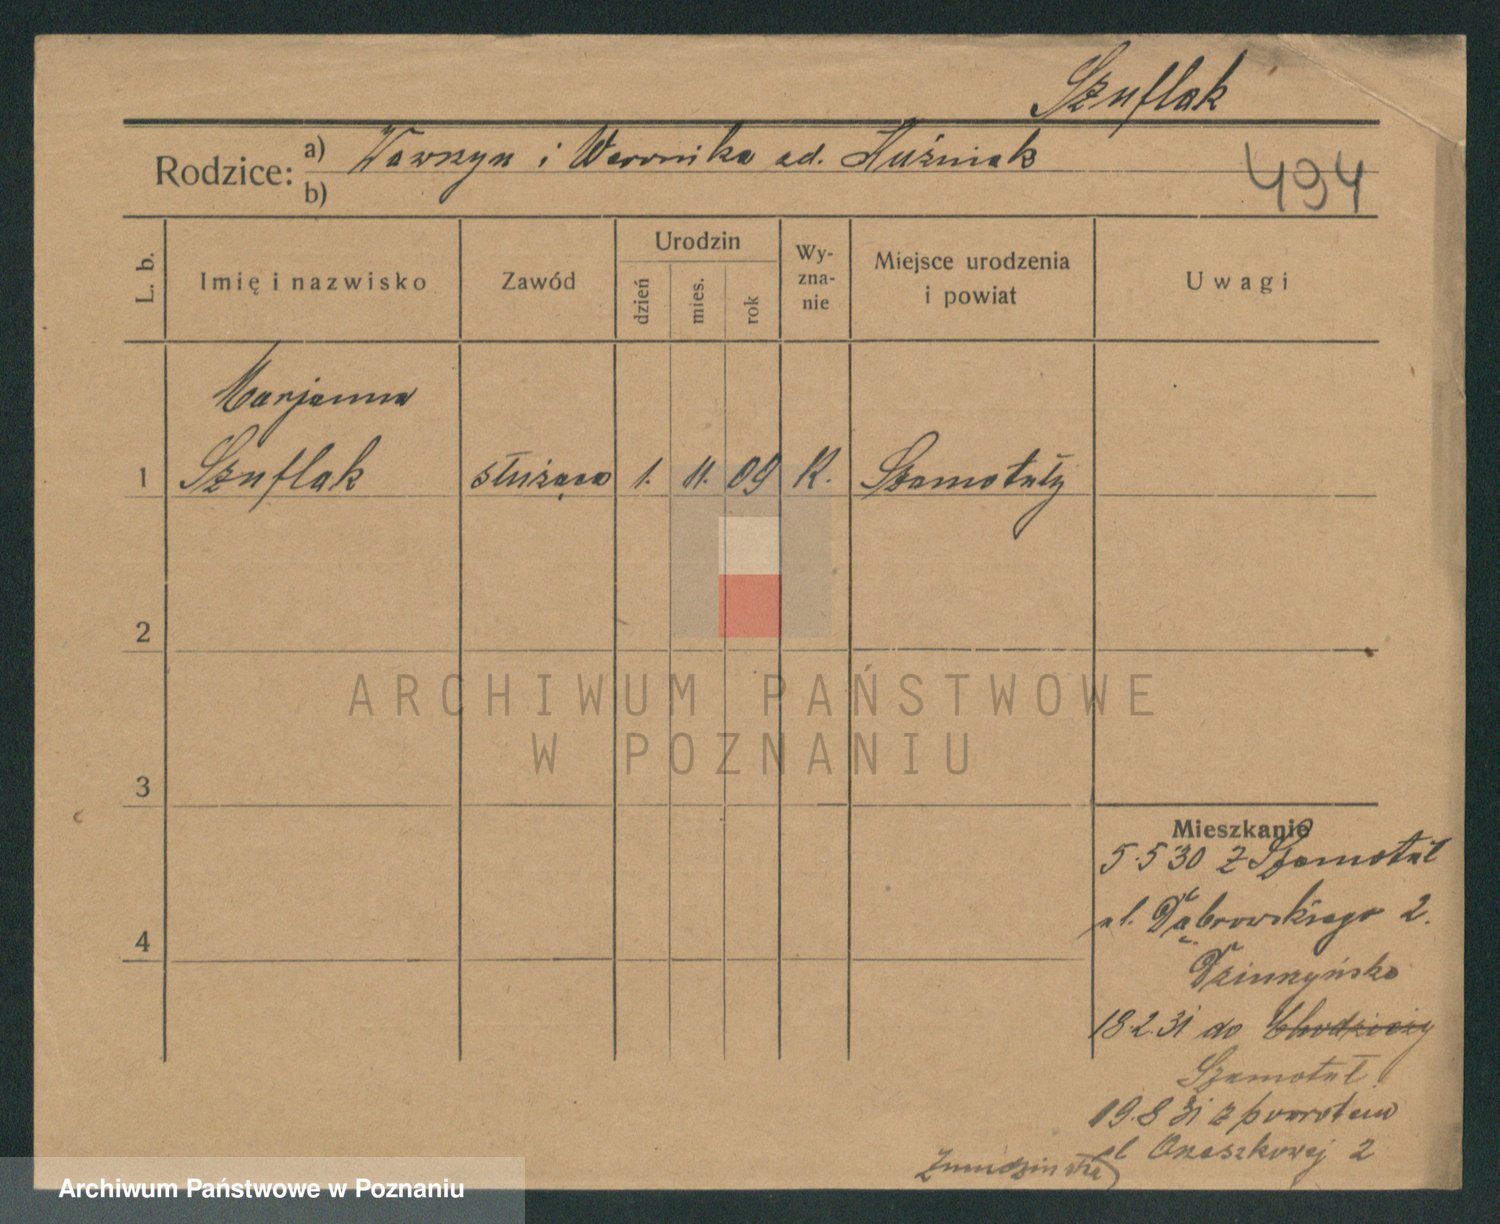 Szuflak
Rodzice: a) Wawrzyn i Weronika od. Kuźniak
b)
494
L. b. Imię i nazwisko Zawód Urodzin dzień mies. rok Wy-zna-nie Miejsce urodzenia i powiat Uwagi
Marjanna
1 Szuflak służąca 1. 11. 09 K. Szamotuły
2
3
4
ARCHIWUM PAŃSTWOWE
W POZNANIU
Mieszkanie
5.5 30 z Szamotuł
ul. Dąbrowskiego 2.
18.2.31 do Chodzieży
Szamotuł
19.8 31 z powrotem
ul Orzeszkowej 2
Archiwum Państwowe w Poznaniu